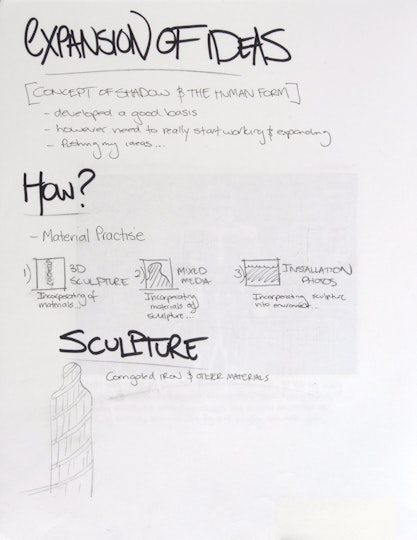 EXPANSION OF IDEAS
[CONCEPT OF SHADOW & THE HUMAN FORM]
- developed a good basis
- however need to really start working & expanding
- pushing my ideas...
How?
- Material Practise
1) 3D SCULPTURE
Incorporating of materials...
2) MIXED MEDIA
Incorporating materials of sculpture...
3) INSTALLATION PHOTOS
Incorporating sculpture into enviroment...
SCULPTURE
Corrigated IRON & OTHER MATERIALS